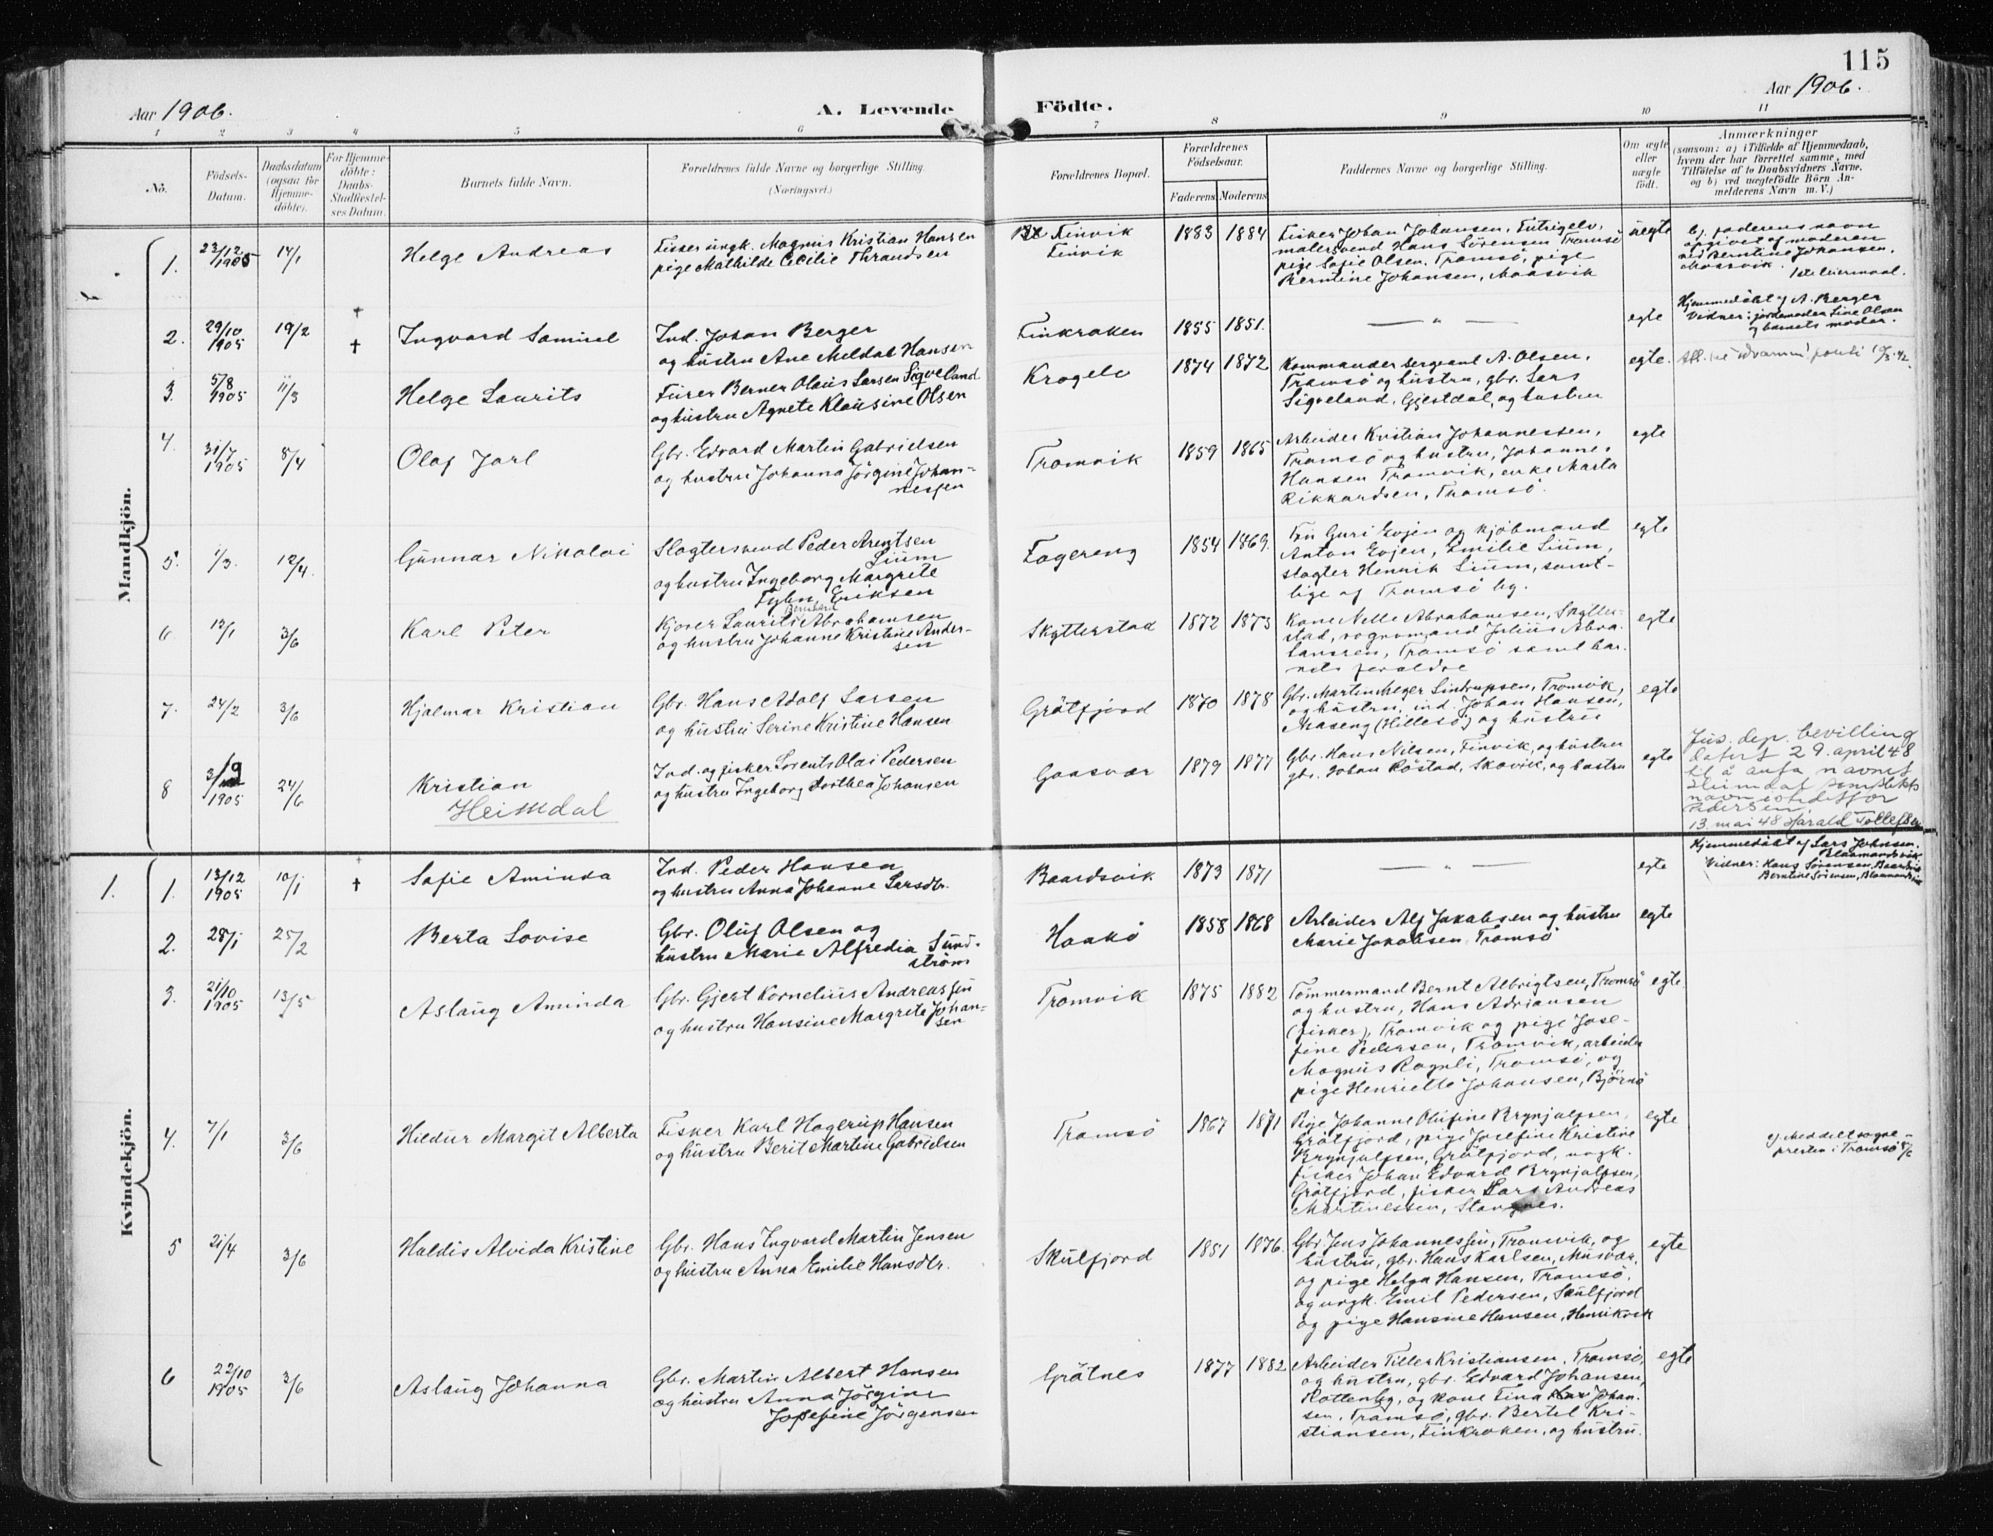 115
Aar 1906.
A. Levende Födte.
Aar 1906.
1 2 3 4 5 6 7 8 9 10 11
No.
Födsels-
Datum.
Daabsdatum
(ogsaa for
Hjemme-
döbte).
For Hjemme-
döbte:
Daabs-
Stadfæstel-
ses Datum.
Barnets fulde Navn.
Forældrenes fulde Navne og borgerlige Stilling.
(Næringsvei.)
Forældrenes Bopæl.
Forældrenes
Födselsaar.
Faderens Moderens
Faddernes Navne og borgerlige Stilling.
Om ægte
eller
uægte
födt.
Anmærkninger
(saasom: a) i Tilfælde af Hjemmedaab,
hvem der har forrettet samme, med
Tilföielse af to Daabsvidners Navne.
og b) ved uægtefödte Börn An-
melderens Navn m. V.)
Mandkjön.
1.
23/12
1905
14/1
Helge Andreas
Fisker ungk. Magnus Kristian Hansen
pige Mathilde Cecilie Thrandsen
Finvik
Finvik
1883 1884
Fisker Johan Johansen, Futrigelv,
malersvend Hans Sörensen Tromsö
pige Sofie Olsen, Tromsö, pige
Berntine Johansen, Maasvik
uegte
b) faderens navn
opgivet af moderen
ved Berntine Johansen,
Maasvik.
1ste leiermaal.
2.
29/10
1905
19/2
†
†
Ingvard Samuel
Ind. Johan Berger
og hustru Ane Meldal Hansen
Finkroken
1855 1851.
— " —
egte
Hjemmedöbt af A. Berger
Vidner: jordemoder Line Olsen
og barnets moder.
3.
5/8
1905
11/3
Helge Laurits
Furer Berner Olaus Larsen Sigveland
og hustru Agnete Klausine Olsen
Krogelv
1874 1872
Kommander sergeant A. Olsen,
Tromsö og hustru, gbr. Lars
Sigveland, Gjestdal, og hustru
egte.
4.
31/7
1905
8/4
Olaf Jarl
Gbr. Edvard Martin Gabrielsen
og hustru Johanna Jörgine Johan-
nessen
Tromvik
1859 1865
Arbeider Kristian Johannessen,
Tromsö og hustru, Johannes
Hansen Tromvik, enke Marta
Rikkardsen, Tromsö.
egte
5.
1/3.
12/4.
Gunnar Nikolai
Slagtersvend Peder Arentsen
Lium
og hustru Ingeborg Margrete
Fyhn, Eriksen
Fagereng
1854 1869.
Fru Guri Evjen og kjöbmand
Anton Evjen, Emilie Lium,
slagter Henrik Lium, samt-
lige af Tromsö by.
egte
6
13/1
3/6
Karl Peter
Bernhard
Kjører Laurits Abrahamsen
og hustru Johanne Kristine Ander-
sen
Skytterstad
1872 1873
Kone Nelle Abrahamsen, Skytter-
stad, vognmand Julius Abra-
hamsen, Tromsö samt bar-
nets foreldre
egte
7.
24/2
3/6
Hjalmar Kristian
Gbr. Hans Adolf Larsen
og hustru Serine Kristine Hansen
Grötfjord
1870 1878
Gbr. Martin Meyer Lindrupsen, Tromvik,
og hustru, ind. Johan Hansen,
Maseng (Hillesö) og hustru
egte
8
3/12 9
1905
24/6
Kristian
Heimdal
Ind. og fisker Lorents Olai Pedersen
og hustru Ingeborg Dorthea Johansen
Gaasvær
1879 1877
Gbr. Hans Nilsen, Finvik, og hustru
gbr. Johan Röstad, Skavik, og hustru
egte
Jus. dep. bevilling
datert 29. april 48
til å anta navnet
Heimdal som slekts-
navn istedetfor
Pedersen
13. mai 48 Harald Tollefsen
Kvindekjön.
1.
1.
13/12
1905
10/1
†
†
Sofie Aminda
Ind. Peder Hansen
og hustru Anna Johanne Larsdtr.
Baardsvik
1873 1871
— " —
egte
Hjemmedöbt af Lars Johnsen,
Blaamandsvik
Vidner: Hans Sörensen, Baardsvik
Berntine Sörensen, Blaamandsvik
2.
28/1
25/2
Berta Lovise
Gbr. Oluf Olsen og
hustru Marie Alfredia Sund-
ström
Haakö
1858 1868
Arbeider Alf Jakobsen og hustru
Marie Jakobsen, Tromsö
egte
3.
21/10
1905
13/5
Aslaug Aminda
Gbr. Gjert Kornelius Andreassen
og hustru Hansine Margrete Johan-
sen
Tromvik
1875 1882
Tömmermand Bernt Albrigtsen, Tromsö
og hustru, Hans Adriansen
(fisker), Tromvik og pige Jose-
fine Pedersen, Tromvik, arbeider
Magnus Ragnli, Tromsö, og
pige Henriette Johansen, Björnö
egte
4.
7/1
3/6
Hildur Margit Alberta
Fisker Karl Hagerup Hansen
og hustru Berit Martine Gabrielsen
Tromsö
1867 1871
Pige Johanne Olufine Brynjulfsen,
Grötfjord, pige Josefine Kristine
Brynjulfsen, Grötfjord, ungk.
fisker Johan Edvard Brynjulfsen,
Grötfjord, fisker Lars Andreas
Martinessen, Stangnes.
egte
c) Meddelt sogne-
presten i Tromsö
5
21/4
3/6
Haldis Alvida Kristine
Gbr. Hans Ingvard Martin Jensen
og hustru Anna Emilie Hansdtr.
Skulfjord
1851 1876.
Gbr. Jens Johannessen, Tromvik, og
hustru, gbr. Hans Karlsen, Musvær,
og pige Helga Hansen, Tromsö,
og ungk. Emil Pedersen, Skulfjord
og pige Hansine Hansen, Henrikvik
egte
6
22/10
1905
3/6
Aslaug Johanna
Gbr. Martin Albert Hansen
og hustru Anna Jörgine
Josefine Jörgensen
Grötnes
1877 1882
Arbeider Tilles Kristiansen, Tromsö,
og hustru, gbr. Edvard Johansen,
Kottenbg, og kone Tina Johan-
sen, Tromsö, gbr. Bertel Kri-
stiansen, Finkroken, og hustru.
egte